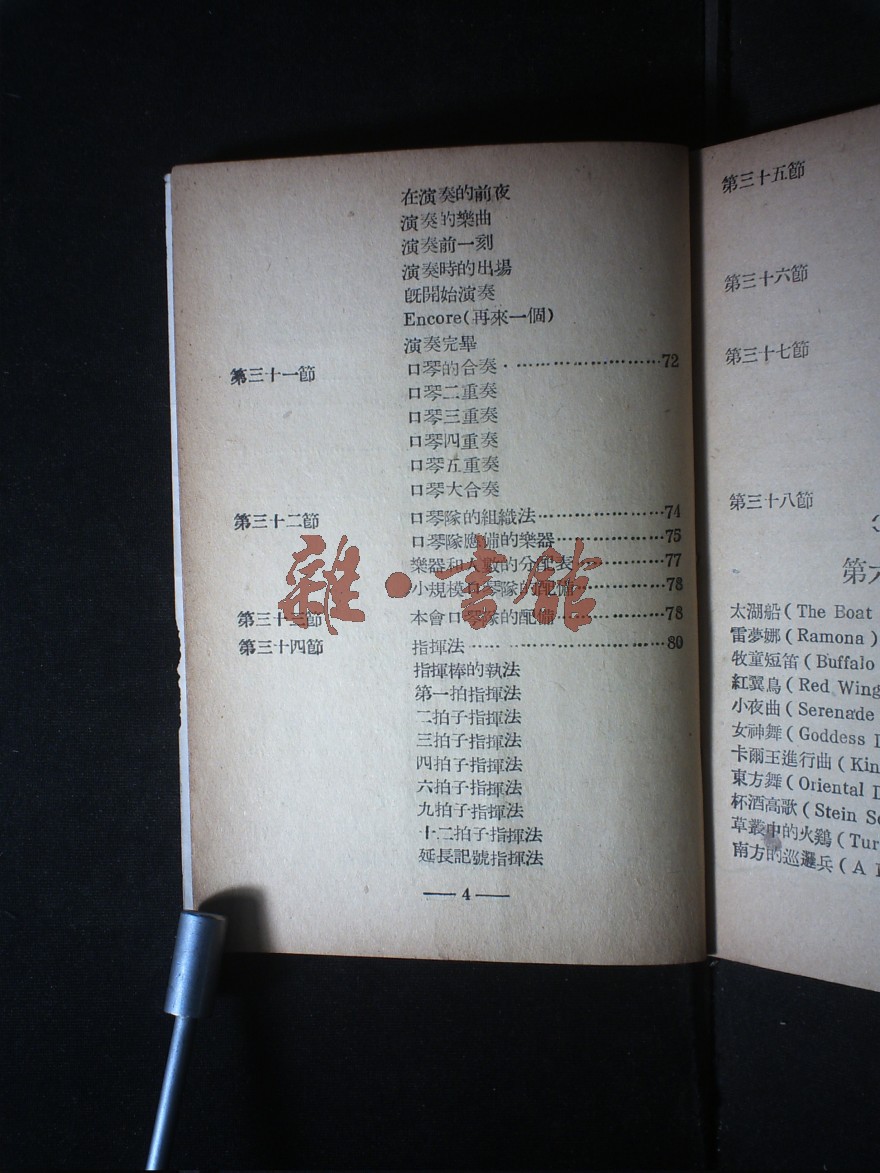 在演奏的前夜
演奏的樂曲
演奏前一刻
演奏時的出場
旣開始演奏
Encore(再來一個)
演奏完畢
第三十一節 口琴的合奏·························72
口琴二重奏
口琴三重奏
口琴四重奏
口琴五重奏
口琴大合奏
第三十二節 口琴隊的組織法····················74
口琴隊應備的樂器··················75
樂器和人數的分配表················77
小規模口琴隊的配備················78
第三十三節 本會口琴隊的配備··················78
第三十四節 指揮法·····························80
指揮棒的執法
第一拍指揮法
二拍子指揮法
三拍子指揮法
四拍子指揮法
六拍子指揮法
九拍子指揮法
十二拍子指揮法
延長記號指揮法
— 4 —
雜·書館
第三十五節
第三十六節
第三十七節
第三十八節
第六
太湖船(The Boat
雷夢娜(Ramona)
牧童短笛(Buffalo
紅翼鳥(Red Wing
小夜曲(Serenade
女神舞(Goddess
卡爾王進行曲(Kin
東方舞(Oriental
杯酒高歌(Stein
草叢中的火鷄(Tur
南方的巡邏兵(A